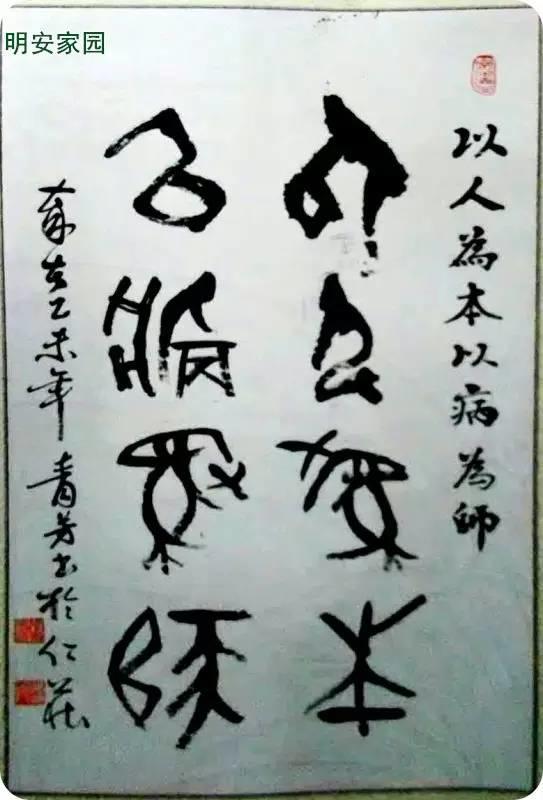 明安家园
以人為本以病為師
以人為本
以病為師
歲在乙未年青芳書於仁莊